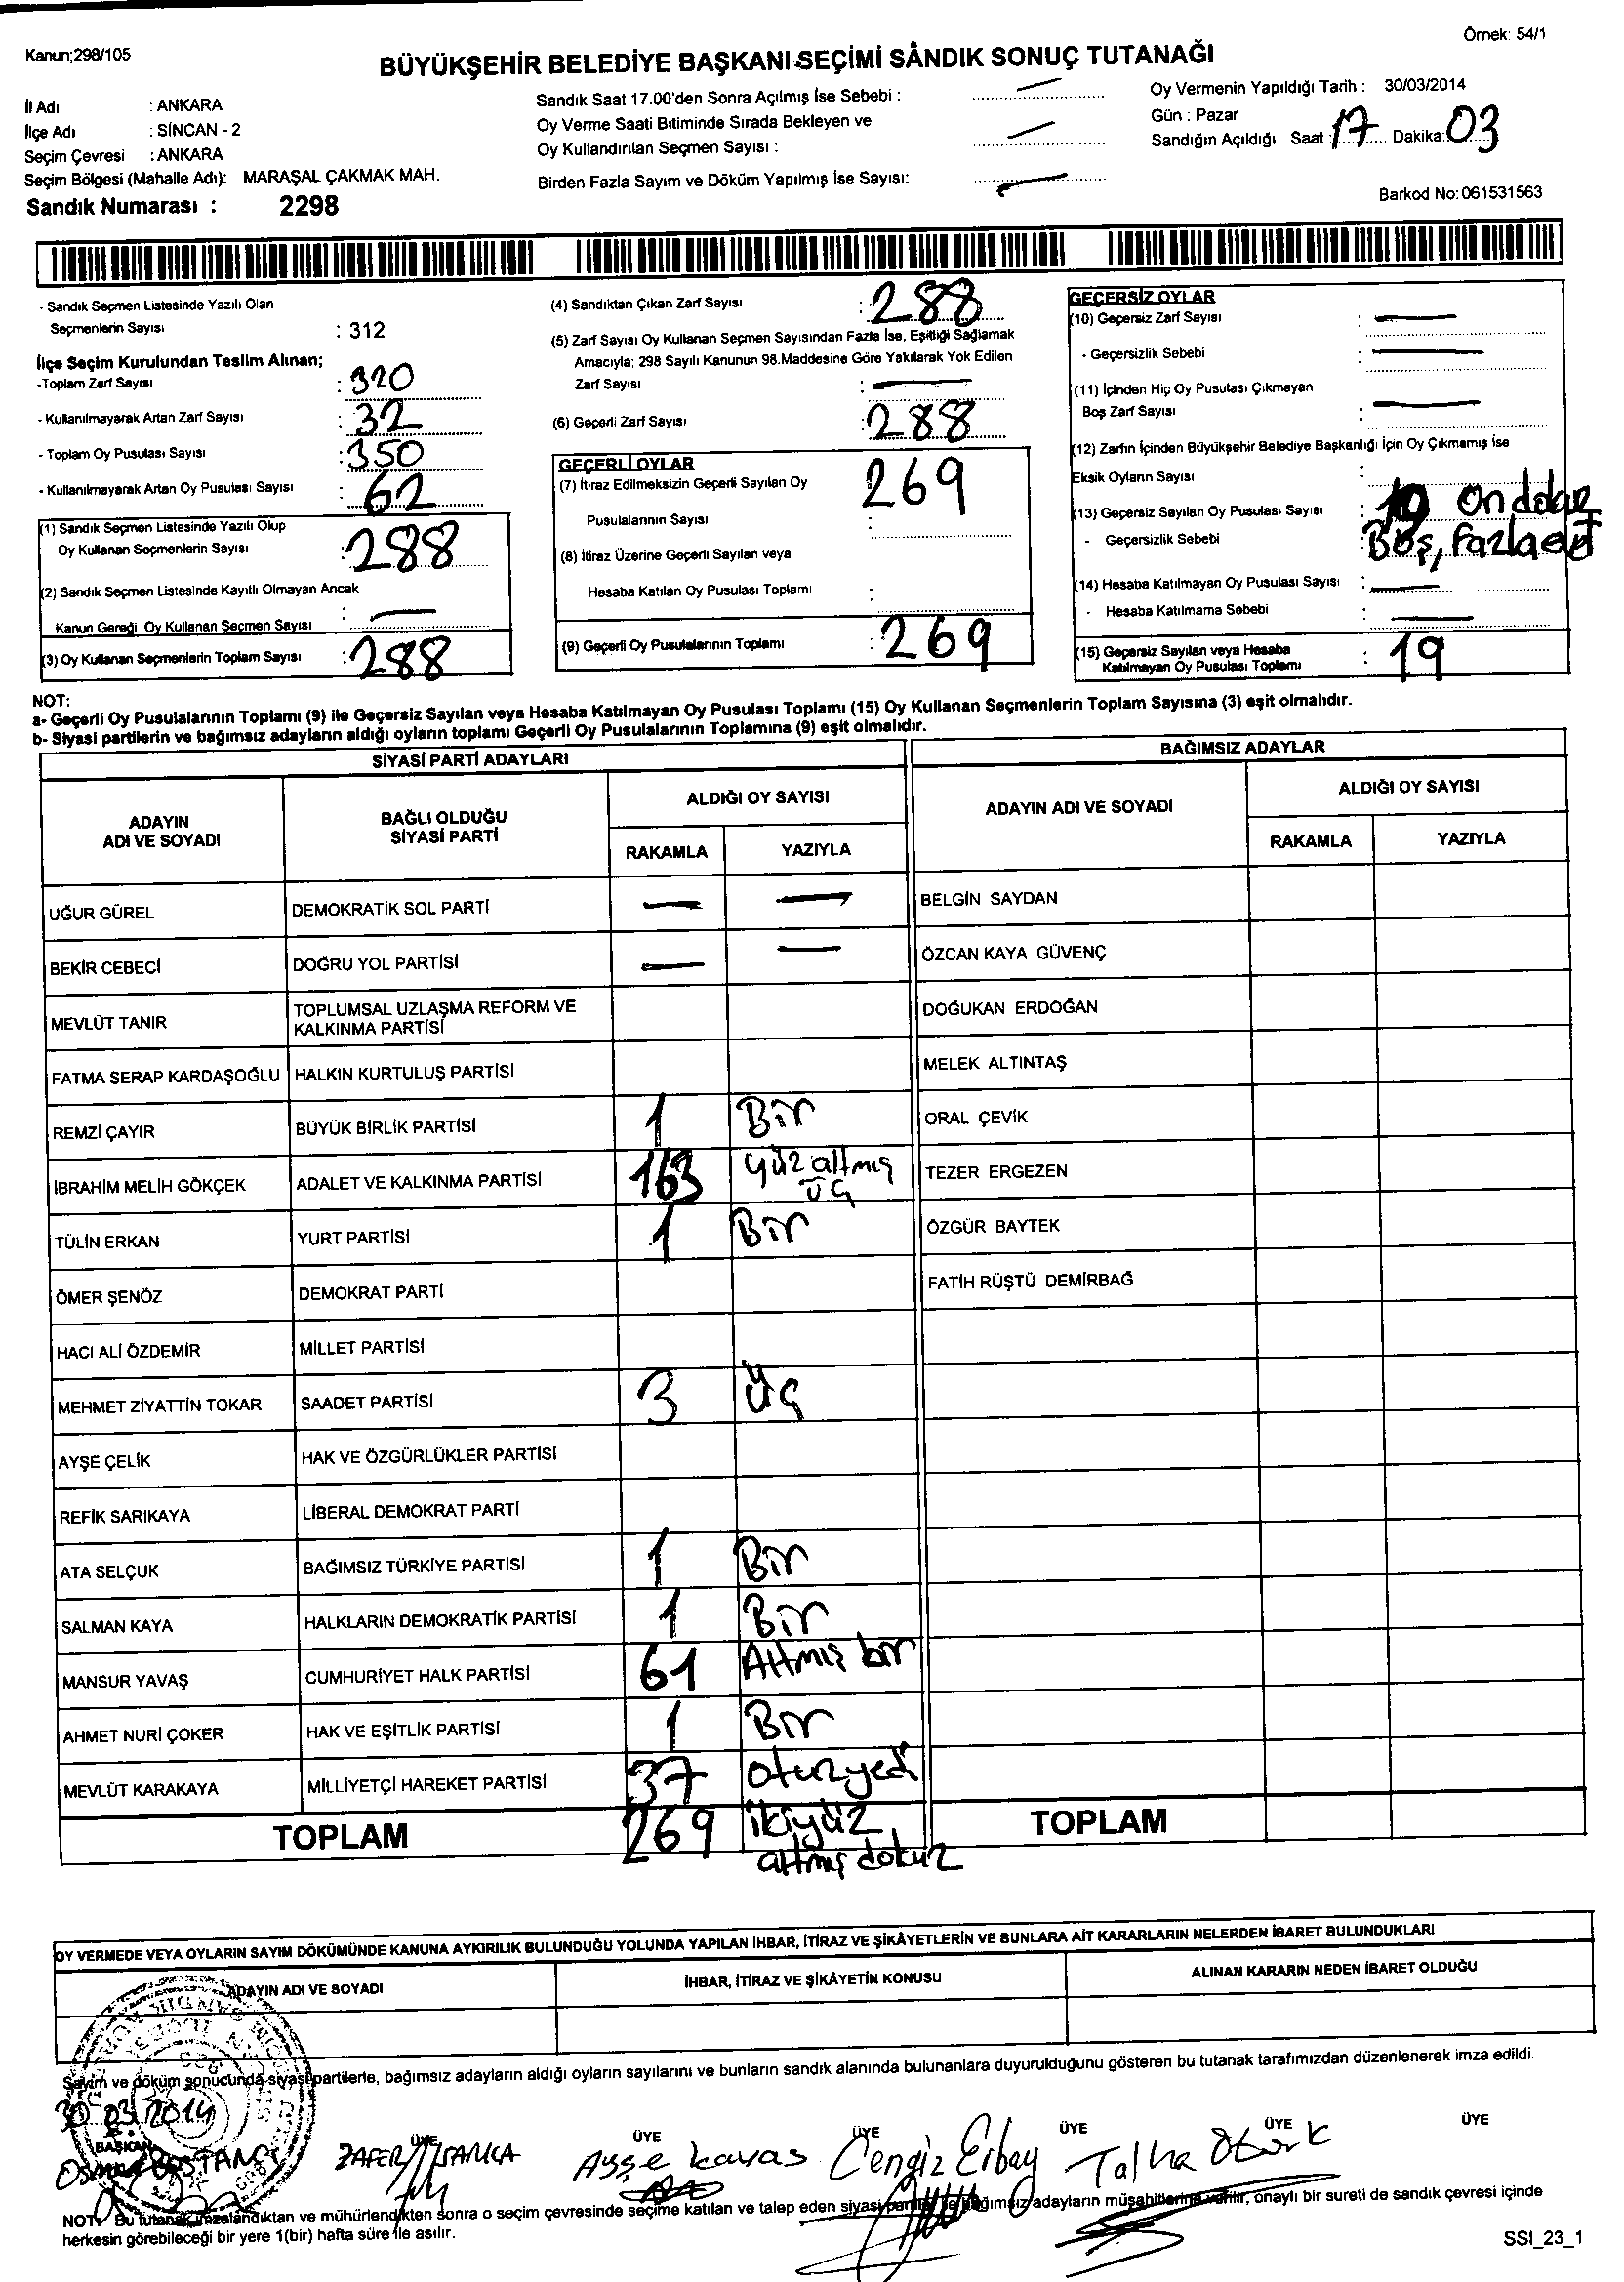 Kanun;298/105
Örnek: 54/1
BÜYÜKŞEHİR BELEDİYE BAŞKANI SEÇİMİ SANDIK SONUÇ TUTANAĞI
İl Adı : ANKARA
İlçe Adı : SİNCAN - 2
Seçim Çevresi : ANKARA
Seçim Bölgesi (Mahalle Adı): MARAŞAL ÇAKMAK MAH.
Sandık Numarası : 2298
Sandık Saat 17.00'den Sonra Açılmış İse Sebebi : —
Oy Verme Saati Bitiminde Sırada Bekleyen ve
Oy Kullandırılan Seçmen Sayısı : —
Birden Fazla Sayım ve Döküm Yapılmış İse Sayısı: —
Oy Vermenin Yapıldığı Tarih : 30/03/2014
Gün : Pazar
Sandığın Açıldığı Saat : 17 Dakika: 03
Barkod No: 061531563
- Sandık Seçmen Listesinde Yazılı Olan
Seçmenlerin Sayısı : 312
İlçe Seçim Kurulundan Teslim Alınan;
-Toplam Zarf Sayısı : 320
- Kullanılmayarak Artan Zarf Sayısı : 32
- Toplam Oy Pusulası Sayısı : 350
- Kullanılmayarak Artan Oy Pusulası Sayısı : 62
(1) Sandık Seçmen Listesinde Yazılı Olup
Oy Kullanan Seçmenlerin Sayısı : 288
(2) Sandık Seçmen Listesinde Kayıtlı Olmayan Ancak
Kanun Gereği Oy Kullanan Seçmen Sayısı : —
(3) Oy Kullanan Seçmenlerin Toplam Sayısı : 288
(4) Sandıktan Çıkan Zarf Sayısı : 288
(5) Zarf Sayısı Oy Kullanan Seçmen Sayısından Fazla İse, Eşitliği Sağlamak
Amacıyla; 298 Sayılı Kanunun 98.Maddesine Göre Yakılarak Yok Edilen
Zarf Sayısı : —
(6) Geçerli Zarf Sayısı : 288
GEÇERLİ OYLAR
(7) İtiraz Edilmeksizin Geçerli Sayılan Oy 269
Pusulalarının Sayısı :
(8) İtiraz Üzerine Geçerli Sayılan veya
Hesaba Katılan Oy Pusulası Toplamı :
(9) Geçerli Oy Pusulalarının Toplamı : 269
GEÇERSİZ OYLAR
(10) Geçersiz Zarf Sayısı : —
- Geçersizlik Sebebi : —
(11) İçinden Hiç Oy Pusulası Çıkmayan
Boş Zarf Sayısı : —
(12) Zarfın İçinden Büyükşehir Belediye Başkanlığı İçin Oy Çıkmamış İse
Eksik Oyların Sayısı :
(13) Geçersiz Sayılan Oy Pusulası Sayısı : 19 On dokuz
- Geçersizlik Sebebi : Boş, fazla
(14) Hesaba Katılmayan Oy Pusulası Sayısı : —
- Hesaba Katılmama Sebebi : —
(15) Geçersiz Sayılan veya Hesaba
Katılmayan Oy Pusulası Toplamı : 19
NOT:
a- Geçerli Oy Pusulalarının Toplamı (9) ile Geçersiz Sayılan veya Hesaba Katılmayan Oy Pusulası Toplamı (15) Oy Kullanan Seçmenlerin Toplam Sayısına (3) eşit olmalıdır.
b- Siyasi partilerin ve bağımsız adayların aldığı oyların toplamı Geçerli Oy Pusulalarının Toplamına (9) eşit olmalıdır.
SİYASİ PARTİ ADAYLARI
ADAYIN
ADI VE SOYADI
BAĞLI OLDUĞU
SİYASİ PARTİ
ALDIĞI OY SAYISI
RAKAMLA YAZIYLA
UĞUR GÜREL DEMOKRATİK SOL PARTİ — —
BEKİR CEBECİ DOĞRU YOL PARTİSİ — —
MEVLÜT TANIR TOPLUMSAL UZLAŞMA REFORM VE
KALKINMA PARTİSİ
FATMA SERAP KARDAŞOĞLU HALKIN KURTULUŞ PARTİSİ
REMZİ ÇAYIR BÜYÜK BİRLİK PARTİSİ 1 Bir
İBRAHİM MELİH GÖKÇEK ADALET VE KALKINMA PARTİSİ 163 yüz altmış
üç
TÜLİN ERKAN YURT PARTİSİ 1 Bir
ÖMER ŞENÖZ DEMOKRAT PARTİ
HACI ALİ ÖZDEMİR MİLLET PARTİSİ
MEHMET ZİYATTİN TOKAR SAADET PARTİSİ 3 üç
AYŞE ÇELİK HAK VE ÖZGÜRLÜKLER PARTİSİ
REFİK SARIKAYA LİBERAL DEMOKRAT PARTİ
ATA SELÇUK BAĞIMSIZ TÜRKİYE PARTİSİ 1 Bir
SALMAN KAYA HALKLARIN DEMOKRATİK PARTİSİ 1 Bir
MANSUR YAVAŞ CUMHURİYET HALK PARTİSİ 61 Altmış bir
AHMET NURİ ÇOKER HAK VE EŞİTLİK PARTİSİ 1 Bir
MEVLÜT KARAKAYA MİLLİYETÇİ HAREKET PARTİSİ 37 otuzyedi
TOPLAM 269 ikiyüz
altmış dokuz
BAĞIMSIZ ADAYLAR
ADAYIN ADI VE SOYADI
ALDIĞI OY SAYISI
RAKAMLA YAZIYLA
BELGİN SAYDAN
ÖZCAN KAYA GÜVENÇ
DOĞUKAN ERDOĞAN
MELEK ALTINTAŞ
ORAL ÇEVİK
TEZER ERGEZEN
ÖZGÜR BAYTEK
FATİH RÜŞTÜ DEMİRBAĞ
TOPLAM
OY VERMEDE VEYA OYLARIN SAYIM DÖKÜMÜNDE KANUNA AYKIRILIK BULUNDUĞU YOLUNDA YAPILAN İHBAR, İTİRAZ VE ŞİKÂYETLERİN VE BUNLARA AİT KARARLARIN NELERDEN İBARET BULUNDUKLARI
ADAYIN ADI VE SOYADI
İHBAR, İTİRAZ VE ŞİKÂYETİN KONUSU
ALINAN KARARIN NEDEN İBARET OLDUĞU
Sayım ve döküm sonucunda siyasi partilerle, bağımsız adayların aldığı oyların sayılarını ve bunların sandık alanında bulunanlara duyurulduğunu gösteren bu tutanak tarafımızdan düzenlenerek imza edildi.
30.03.2014
BAŞKAN ÜYE ÜYE ÜYE ÜYE ÜYE ÜYE
Osman BOSTANCI ZAFER Ayşe kavas Cengiz Erbay Talha Öztürk
NOT: Bu tutanak imzalandıktan ve mühürlendikten sonra o seçim çevresinde seçime katılan ve talep eden siyasi partiler ile bağımsız adayların müşahitlerine verilir, onaylı bir sureti de sandık çevresi içinde
herkesin görebileceği bir yere 1(bir) hafta süre ile asılır.
SSI_23_1